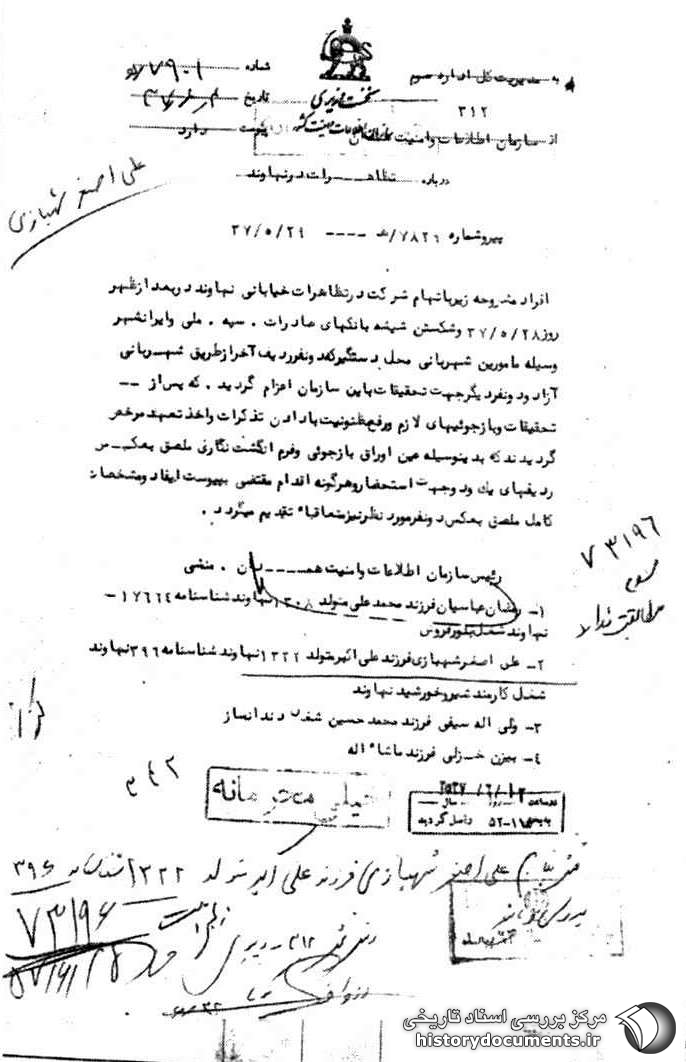 به مدیریت کل اداره سوم
شماره ۷۹۰۱
۳۱۲
نخست وزیری
تاریخ
از سازمان اطلاعات و امنیت
سازمان اطلاعات و امنیت کشور
پیوست دارد
درباره تظاهرات در نهاوند
علی اصغر شهبازی
پیرو شماره ۷۸۲۶/ ---- ۳۷/۵/۲۹
افراد مشروحه زیر باتهام شرکت در تظاهرات خیابانی نهاوند در بعد از ظهر
روز ۳۷/۵/۲۸ و شکستن شیشه بانکهای صادرات . سپه . ملی و ایرانشهر
وسیله مامورین شهربانی محل دستگیر که دو نفر ردیف آخر از طریق شهربانی
آزاد و دو نفر دیگر جهت تحقیقات باین سازمان اعزام گردید . که پس از --
تحقیقات و بازجوئیهای لازم و رفع مظنونیت با دادن تذکرات و اخذ تعهد مرخص
گردیدند که بدینوسیله عین اوراق بازجوئی و فرم انگشت نگاری ملصق بعکس
ردیفهای یک و دو جهت استحضار و هرگونه اقدام مقتضی بپیوست ایفاد و مشخصات
کامل ملصق بعکس دو نفر مورد نظر نیز متعاقباً تقدیم میگردد .
۷۳۱۹۶
رئیس سازمان اطلاعات و امنیت همدان . منشی
۱- رمضان عباسیان فرزند محمد علی متولد ۱۳۰۸ نهاوند شناسنامه ۱۷۶۶۴ -
نهاوند شغل بلورفروش
۲- علی اصغر شهبازی فرزند علی اکبر متولد ۱۳۲۲ نهاوند شناسنامه ۳۹۶ نهاوند
شغل کارمند شیر و خورشید نهاوند
۳- ولی اله سیفی فرزند محمد حسین شغل دندانساز
۴- بیژن خزلی فرزند ماشاء اله
خیلی محرمانه
علی اصغر شهبازی فرزند علی اکبر متولد ۱۳۲۲ شناسنامه ۳۹۶
۷۳۱۹۶
مرکز بررسی اسناد تاریخی
historydocuments.ir